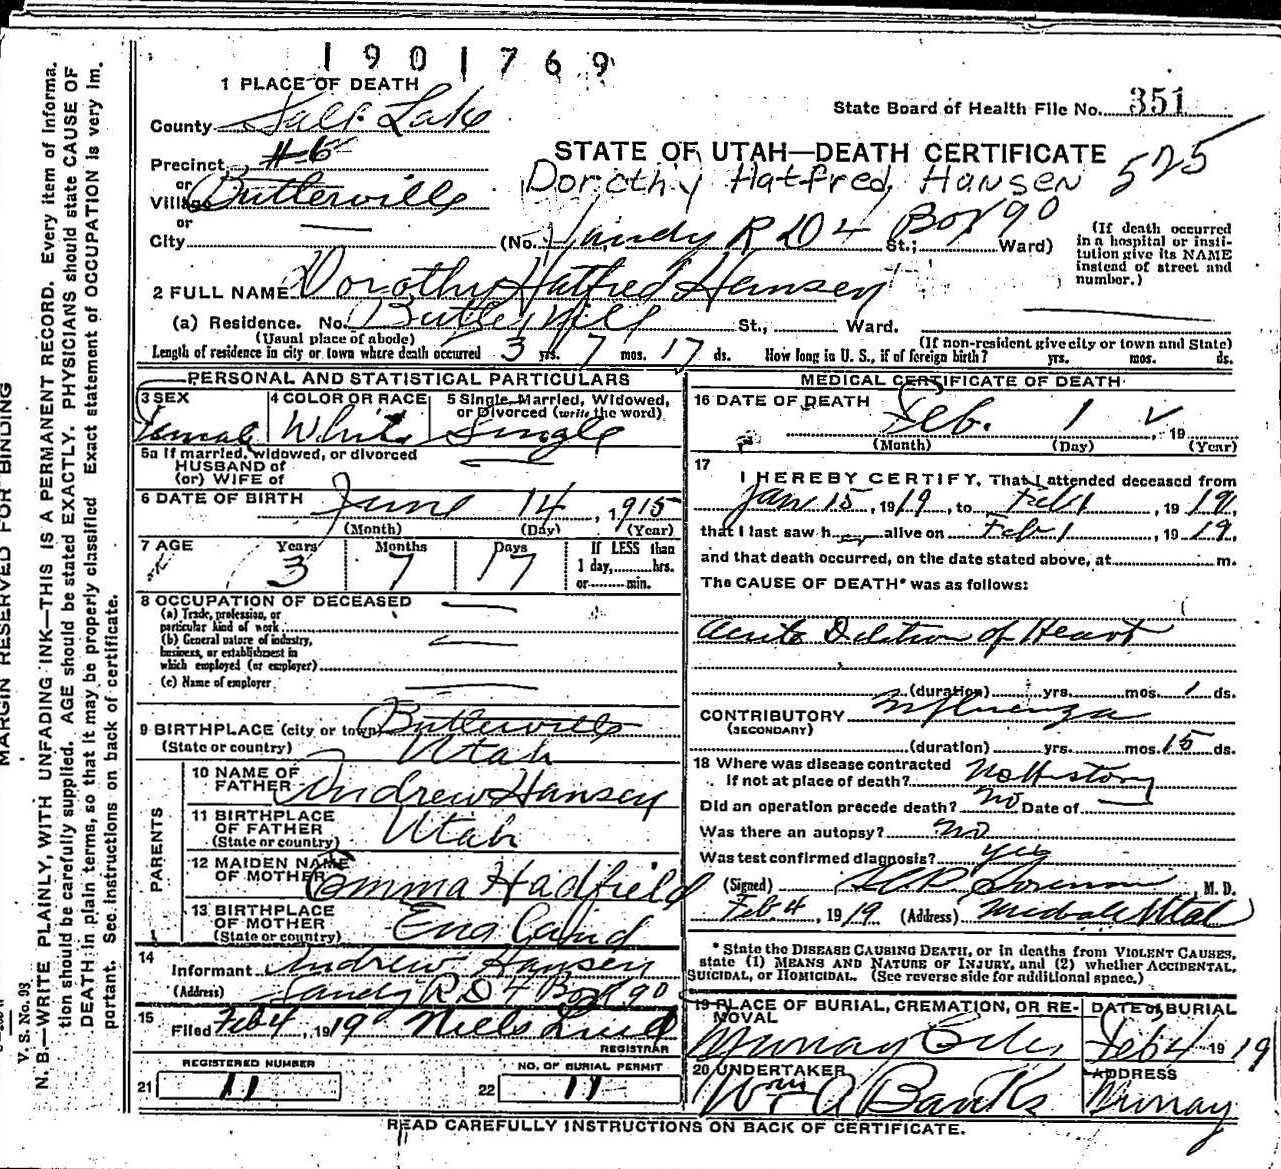 1901769
1 PLACE OF DEATH
State Board of Health File No. 351
County Salt Lake
STATE OF UTAH—DEATH CERTIFICATE 525
Precinct #6
Dorothy Hatfred Hansen
or
Village Butlerville
or
City (No. Sandy R D 4 Box 90 St.; Ward)
(If death occurred
in a hospital or insti-
tution give its NAME
instead of street and
number.)
2 FULL NAME Dorothy Hatfred Hansen
(a) Residence. No. Butlerville St., Ward.
(Usual place of abode) (If non-resident give city or town and State)
Length of residence in city or town where death occurred 3 yrs. 7 mos. 17 ds. How long in U. S., if of foreign birth? yrs. mos. ds.
PERSONAL AND STATISTICAL PARTICULARS
3 SEX 4 COLOR OR RACE 5 Single, Married, Widowed,
or Divorced (write the word)
Female White Single
5a If married, widowed, or divorced
HUSBAND of
(or) WIFE of
6 DATE OF BIRTH June 14, 1915
(Month) (Day) (Year)
7 AGE Years Months Days If LESS than
3 7 17 1 day, hrs.
or min.
8 OCCUPATION OF DECEASED
(a) Trade, profession, or
particular kind of work
(b) General nature of industry,
business, or establishment in
which employed (or employer)
(c) Name of employer
9 BIRTHPLACE (city or town) Butlerville
(State or country) Utah
PARENTS
10 NAME OF
FATHER Andrew Hansen
11 BIRTHPLACE
OF FATHER
(State or country) Utah
12 MAIDEN NAME
OF MOTHER Emma Hadfield
13 BIRTHPLACE
OF MOTHER
(State or country) England
14
Informant Andrew Hansen
(Address) Sandy R D 4 Box 90
15
Filed Feb 4, 1919 Niels Lind
REGISTRAR
REGISTERED NUMBER NO. OF BURIAL PERMIT
21 11 22 11
MEDICAL CERTIFICATE OF DEATH
16 DATE OF DEATH
Feb. 1, 19
(Month) (Day) (Year)
17
I HEREBY CERTIFY, That I attended deceased from
Jan 15, 1919, to Feb 1, 191,
that I last saw h alive on Feb 1, 1919,
and that death occurred, on the date stated above, at m.
The CAUSE OF DEATH* was as follows:
Acute Dilition of Heart
(duration) yrs. mos. 1 ds.
CONTRIBUTORY Influenza
(SECONDARY)
(duration) yrs. mos. 15 ds.
18 Where was disease contracted
If not at place of death? No History
Did an operation precede death? no Date of
Was there an autopsy? no
Was test confirmed diagnosis? yes
(Signed) Sorenson, M. D.
Feb. 4, 1919 (Address) Midvale Utah
* State the DISEASE CAUSING DEATH, or in deaths from VIOLENT CAUSES,
state (1) MEANS AND NATURE OF INJURY, and (2) whether ACCIDENTAL,
SUICIDAL, or HOMICIDAL. (See reverse side for additional space.)
19 PLACE OF BURIAL, CREMATION, OR RE-
MOVAL
DATE of BURIAL
Murray Feb 4 1919
20 UNDERTAKER ADDRESS
Wm A Banks Murray
READ CAREFULLY INSTRUCTIONS ON BACK OF CERTIFICATE.
MARGIN RESERVED FOR BINDING
V. S. No. 98
N. B.—WRITE PLAINLY, WITH UNFADING INK—THIS IS A PERMANENT RECORD. Every item of informa-
tion should be carefully supplied. AGE should be stated EXACTLY. PHYSICIANS should state CAUSE OF
DEATH in plain terms, so that it may be properly classified. Exact statement of OCCUPATION is very im-
portant. See instructions on back of certificate.